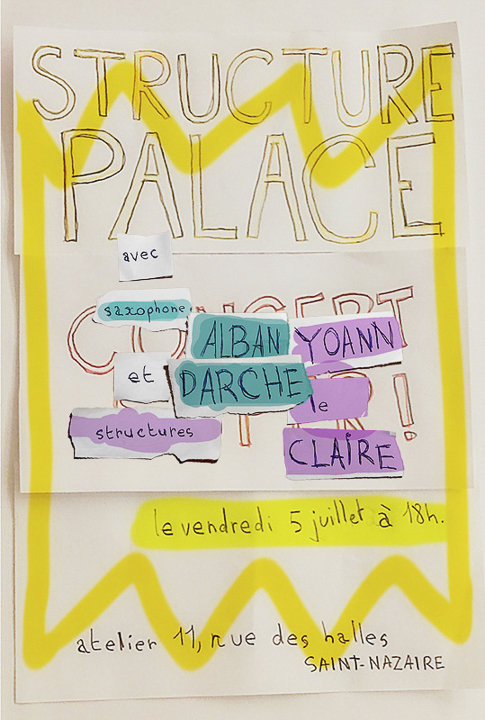 STRUCTURE
PALACE
avec
CONCERT
saxophone
ALBAN YOANN
et DARCHE le
structures CLAIRE
!
le vendredi 5 juillet à 18h.
atelier 11, rue des halles
SAINT-NAZAIRE